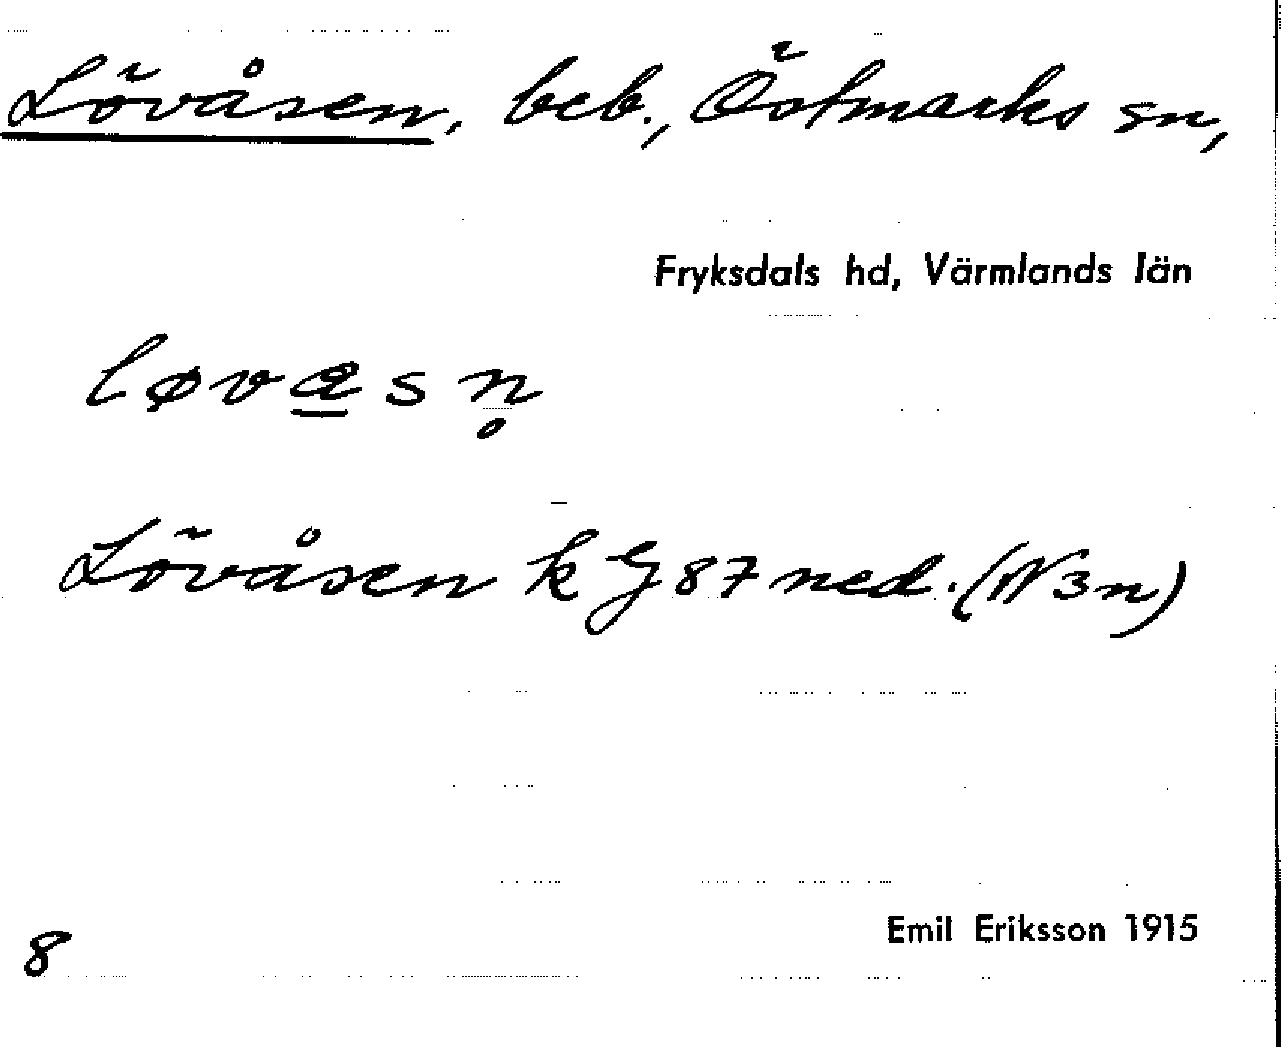 Lövåsen, beb., Östmarks sn,
Fryksdals hd, Värmlands län
løva̲sn̥
Lövåsen k G 87 ned. (N 3 n)
Emil Eriksson 1915
8